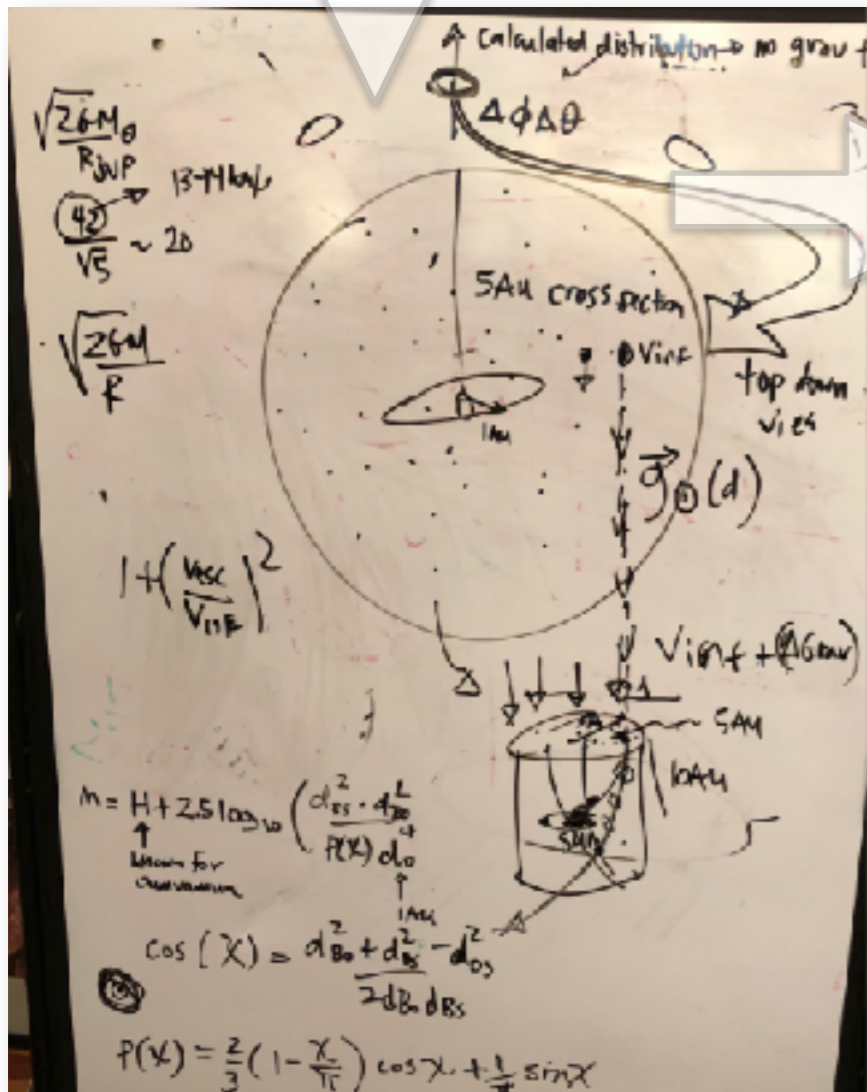 calculated distribution → no grav
ΔφΔθ
√(2GM⊙/R_JUP)
42/√5 ~ 20
13-14 km/s
√(2GM/R)
5AU cross section
Vinf
1AU
top down
view
g⃗⊙(d)
1+(Vesc/Vinf)²
Vinf + (ΔGrav)
5AU
10AU
SUN
m = H + 2.5 log₁₀ (d²_BS · d²_BO / P(χ) d₀⁴
known for
1AU
cos(χ) = d²_BO + d²_BS - d²_OS / 2d_BO d_BS
P(χ) = 2/3 (1 - χ/π) cosχ + 1/π sinχ